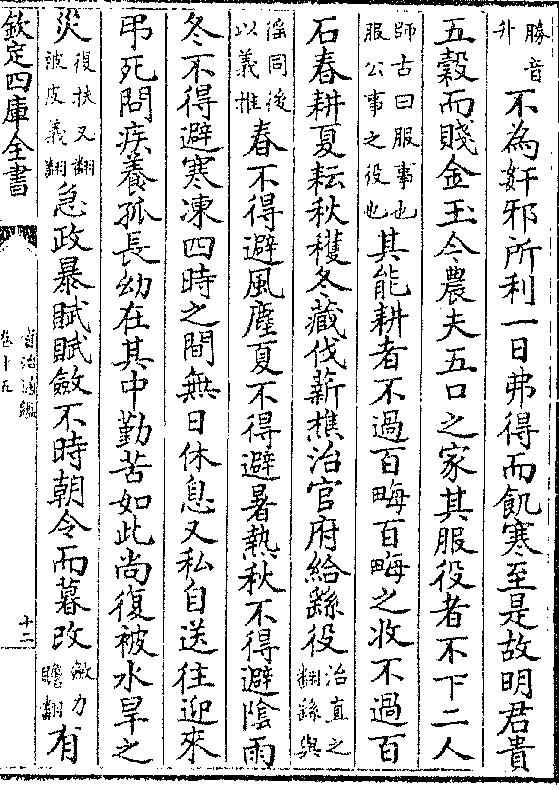 勝音升不為奸邪所利一日弗得而飢寒至是故明君貴
五穀而賤金玉今農夫五口之家其服役者不下二人
師古曰服事也服公事之役也其能耕者不過百畮百畮之收不過百
石春耕夏耘秋穫冬藏伐薪樵治官府給繇役治直之翻繇與
徭同後以義推春不得避風塵夏不得避暑熱秋不得避陰雨
冬不得避寒凍四時之間無日休息又私自送往迎來
弔死問疾養孤長幼在其中勤苦如此尚復被水旱之
災復扶又翻被皮義翻急政暴賦賦斂不時朝令而暮改斂力瞻翻有
欽定四庫全書
資治通鑑
卷十五
十二